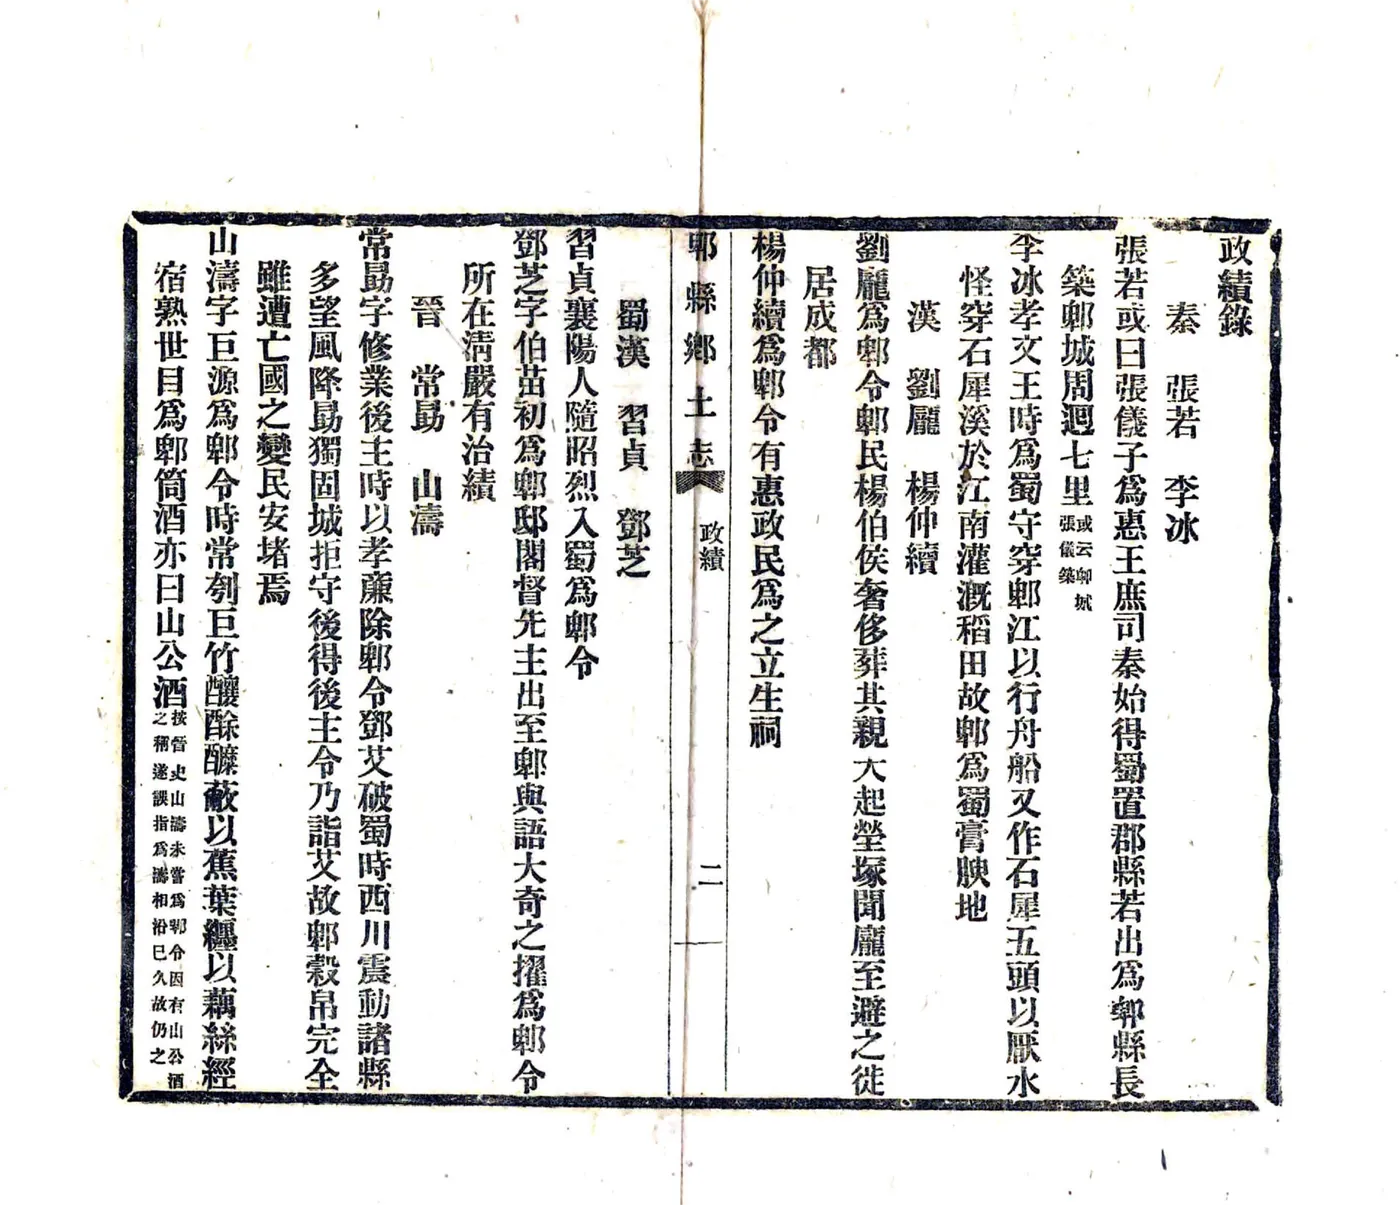 政績錄
秦 張若 李冰
張若或曰張儀子爲惠王庶司秦始得蜀置郡縣若出爲郫縣長
築郫城周迴七里或云郫城張儀築
李冰孝文王時爲蜀守穿郫江以行舟船又作石犀五頭以厭水
怪穿石犀溪於江南灌溉稻田故郫爲蜀膏腴地
漢 劉龐 楊仲續
劉龐爲郫令郫民楊伯侯奢侈葬其親大起塋塚聞龐至避之徙
居成都
楊仲續爲郫令有惠政民爲之立生祠
郫縣鄉土志 政績 二
蜀漢 習貞 鄧芝
習貞襄陽人隨昭烈入蜀爲郫令
鄧芝字伯苗初爲郫邸閣督先主出至郫與語大奇之擢爲郫令
所在清嚴有治績
晉 常勗 山濤
常勗字修業後主時以孝廉除郫令鄧艾破蜀時西川震動諸縣
多望風降勗獨固城拒守後得後主令乃詣艾故郫穀帛完全
雖遭亡國之變民安堵焉
山濤字巨源爲郫令時常刳巨竹釀酴醾蔽以蕉葉纏以藕絲經
宿熟世目爲郫筒酒亦曰山公酒按晉史山濤未嘗爲郫令因有山公酒之稱遂誤指爲濤相沿已久故仍之